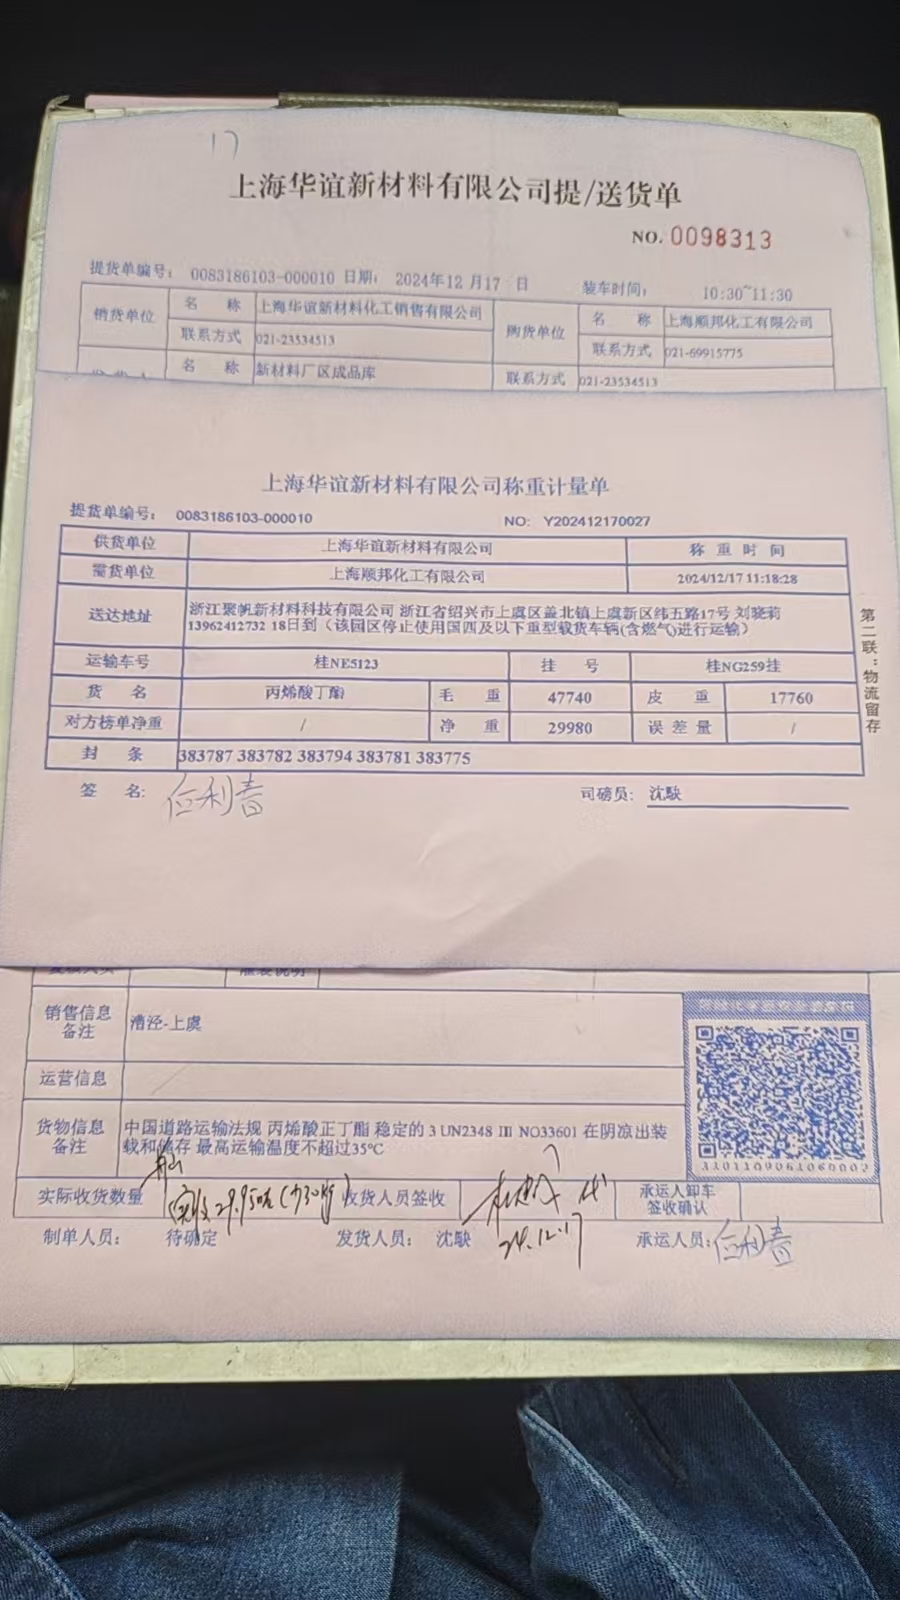 17
上海华谊新材料有限公司提/送货单
NO. 0098313
提货单编号: 0083186103-000010 日期: 2024年12月17 日 装车时间: 10:30~11:30
销货单位 名 称 上海华谊新材料化工销售有限公司 购货单位 名 称 上海顺邦化工有限公司
联系方式 021-23534513 联系方式 021-69915775
名 称 新材料厂区成品库 联系方式 021-23534513
上海华谊新材料有限公司称重计量单
提货单编号: 0083186103-000010 NO: Y202412170027
供货单位 上海华谊新材料有限公司 称 重 时 间
需货单位 上海顺邦化工有限公司 2024/12/17 11:18:28
送达地址 浙江聚帆新材料科技有限公司 浙江省绍兴市上虞区盖北镇上虞新区纬五路17号 刘晓莉
13962412732 18日到（该园区停止使用国四及以下重型载货车辆(含燃气)进行运输）
运输车号 桂NE5123 挂 号 桂NG259挂
货 名 丙烯酸丁酯 毛 重 47740 皮 重 17760
对方榜单净重 / 净 重 29980 误 差 量 /
封 条 383787 383782 383794 383781 383775
签 名: 司磅员: 沈駃
第二联：物流留存
销售信息
备注
漕泾-上虞
运营信息
货物信息
备注
中国道路运输法规 丙烯酸正丁酯 稳定的 3 UN2348 III NO33601 在阴凉出装
载和储存 最高运输温度不超过35℃
3101109061060002
实际收货数量 实收29.95吨 收货人员签收 承运人卸车
签收确认
24.12.17
制单人员: 待确定 发货人员: 沈駃 承运人员: